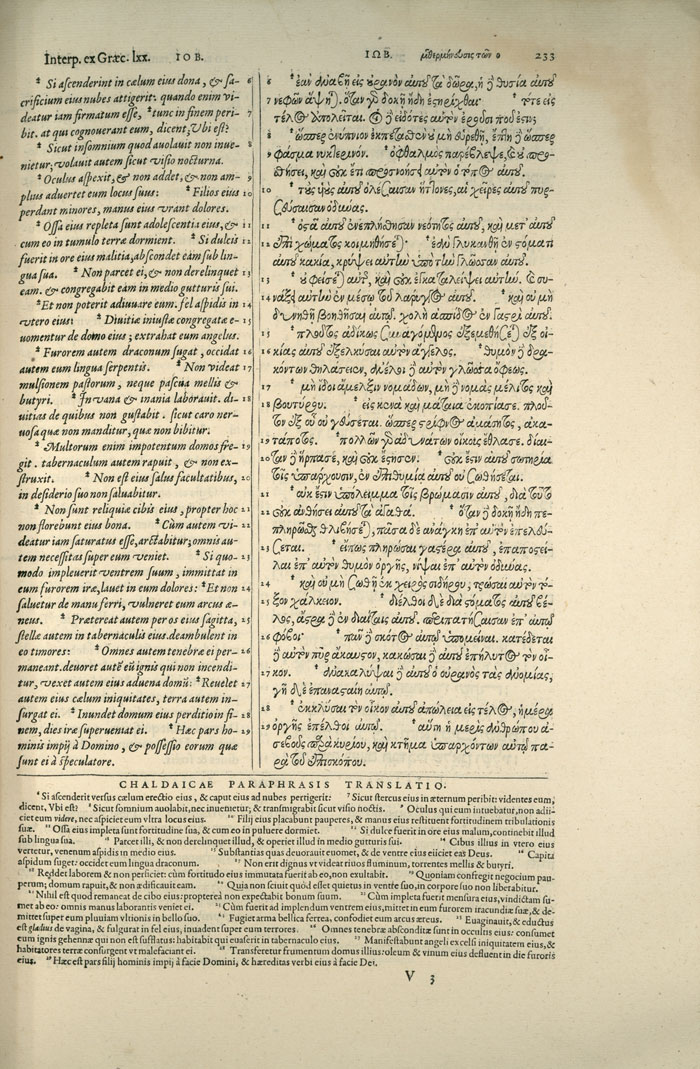 Interp. ex Græc. lxx. IOB.
ΙΩΒ.
233
* Si ascenderint in cælum eius dona, & sa- 6
crificium eius nubes attigerit. quando enim vi-
deatur iam firmatum esse, * tunc in finem peri- 7
bit. at qui cognouerant eum, dicent, Vbi est?
* Sicut insomnium quod auolauit non inue- 8
nietur; volauit autem sicut visio nocturna.
* Oculus aspexit, & non addet; & non am- 9
plius aduertet eum locus suus: * Filios eius 10
perdant minores, manus eius vrant dolores.
* Ossa eius repleta sunt adolescentia eius, & 11
cum eo in tumulo terræ dormient. * Si dulcis 12
fuerit in ore eius malitia, abscondet eam sub lin-
gua sua. * Non parcet ei, & non derelinquet 13
eam. & congregabit eam in medio gutturis sui.
* Et non poterit adiuuare eum. fel aspidis in 14
vtero eius: * Diuitiæ iniustæ congregatæ e- 15
uomentur de domo eius; extrahat eum angelus.
* Furorem autem draconum sugat, occidat 16
autem eum lingua serpentis. * Non videat 17
mulsionem pastorum, neque pascua mellis &
butyri. * In vana & inania laborauit. di- 18
uitias de quibus non gustabit. sicut caro ner-
uosa quæ non manditur, quæ non bibitur.
* Multorum enim impotentum domos fre- 19
git. tabernaculum autem rapuit, & non ex-
struxit. * Non est eius salus facultatibus, 20
in desiderio suo non saluabitur.
* Non sunt reliquiæ cibis eius, propter hoc 21
non florebunt eius bona. * Cùm autem vi- 22
deatur iam saturatus esse, arctabitur; omnis au-
tem necessitas super eum veniet. * Si quo- 23
modo impleuerit ventrem suum, immittat in
eum furorem iræ, lauet in eum dolores: * Et non 24
saluetur de manu ferri, vulneret eum arcus æ-
neus. * Prætereat autem per os eius sagitta, 25
stellæ autem in tabernaculis eius. deambulent in
eo timores: * Omnes autem tenebræ ei per- 26
maneant. deuoret autē eū ignis qui non incendi-
tur, vexet autem eius aduena domū: * Reuelet 27
autem eius cælum iniquitates, terra autem in-
surgat ei. * Inundet domum eius perditio in fi- 28
nem, dies iræ superueniat ei. * Hæc pars ho- 29
minis impij à Domino, & possessio eorum quæ
sunt ei à speculatore.
6 * ἐὰν ἀναβῇ εἰς οὐρανὸν αὐτοῦ τὰ δῶρα, ἡ δὲ θυσία αὐτοῦ
7 νεφῶν ἅψηται. ὅταν γὰρ δοκῇ ἤδη ἐστηρίχθαι * τότε εἰς
τέλος ἀπολεῖται. οἱ δὲ εἰδότες αὐτὸν ἐροῦσι ποῦ ἐστιν;
8 * ὥσπερ ἐνύπνιον ἐκπετασθὲν οὐ μὴ εὑρεθῇ, ἔπτη δὲ ὥσπερ
9 φάσμα νυκτερινόν. * ὀφθαλμὸς παρέβλεψε, καὶ οὐ προσ-
θήσει, καὶ οὐκ ἔτι προσνοήσει αὐτὸν ὁ τόπος αὐτοῦ.
10 * τοὺς υἱοὺς αὐτοῦ ὀλέσαισαν ἥττονες, αἱ χεῖρες αὐτοῦ πυρ-
σεύσαισαν ὀδύνας.
11 * ὀστᾶ αὐτοῦ ἐνεπλήσθησαν νεότητος αὐτοῦ, καὶ μετ' αὐτοῦ
12 ἐπὶ χώματος κοιμηθήσεται * ἐὰν γλυκανθῇ ἐν στόματι
αὐτοῦ κακία, κρύψει αὐτὴν ὑπὸ τὴν γλῶσσαν αὐτοῦ.
13 * οὐ φείσεται αὐτῆς, καὶ οὐκ ἐγκαταλείψει αὐτήν. καὶ συ-
14 νάξει αὐτὴν ἐν μέσῳ τοῦ λάρυγγος αὐτοῦ. * καὶ οὐ μὴ
δυνηθῇ βοηθῆσαι αὐτῷ. χολὴ ἀσπίδος ἐν γαστρὶ αὐτοῦ.
15 * πλοῦτος ἀδίκως συναγόμενος ἐξεμεθήσεται ἐξ οἰ-
16 κίας αὐτοῦ ἐξελκύσαι αὐτὸν ἄγγελος. * θυμὸν δὲ δρα-
κόντων θηλάσειεν, ἀνέλοι δὲ αὐτὸν γλῶσσα ὄφεως.
17 * μὴ ἴδοι ἄμελξιν νομάδων, μὴ δὲ νομὰς μέλιτος καὶ
18 βουτύρου. * εἰς κενὰ καὶ μάταια ἐκοπίασε. πλοῦ-
τον ἐξ οὗ οὐ γεύσεται. ὥσπερ στρίφνος ἀμάσητος, ἀκα-
19 τάποτος. * πολλῶν γὰρ ἀδυνάτων οἴκους ἔθλασε. δίαι-
20 ταν δὲ ἥρπασε, καὶ οὐκ ἔστησεν. * οὐκ ἔστιν αὐτοῦ σωτηρία
τοῖς ὑπάρχουσιν, ἐν ἐπιθυμίᾳ αὐτοῦ οὐ σωθήσεται.
21 * οὐκ ἔστιν ὑπόλειμμα τοῖς βρώμασιν αὐτοῦ, διὰ τοῦτο
22 οὐκ ἀνθήσει αὐτοῦ τὰ ἀγαθά. * ὅταν δὲ δοκῇ ἤδη πε-
πληρῶσθαι θλιβήσεται, πᾶσα δὲ ἀνάγκη ἐπ' αὐτὸν ἐπελεύ-
23 σεται. * εἴπως πληρώσαι γαστέρα αὐτοῦ, ἐπαποστεί-
λαι ἐπ' αὐτὸν θυμὸν ὀργῆς, νίψαι ἐπ' αὐτὸν ὀδύνας.
24 * καὶ οὐ μὴ σωθῇ ἐκ χειρὸς σιδήρου, τρώσαι αὐτὸν τό-
25 ξον χάλκειον. * διέλθοι δὲ διὰ στόματος αὐτοῦ βέ-
λος, ἄστρα δὲ ἐν διαίταις αὐτοῦ. περιπατήσαισαν ἐπ' αὐτῷ
26 φόβοι· * πᾶν δὲ σκότος αὐτῷ ὑπομείναι. κατέδεται
δὲ αὐτὸν πῦρ ἄκαυστον, κακώσαι δὲ αὐτοῦ ἐπήλυτος τὸν οἶ-
27 κον. * ἀνακαλύψαι δὲ αὐτοῦ ὁ οὐρανὸς τὰς ἀνομίας,
γῆ δὲ ἐπανασταίη αὐτῷ.
28 * ἑλκύσαι τὸν οἶκον αὐτοῦ ἀπώλεια εἰς τέλος, ἡμέρα
29 ὀργῆς ἐπέλθοι αὐτῷ. * αὕτη ἡ μερὶς ἀνθρώπου ἀ-
σεβοῦς παρὰ κυρίου, καὶ κτῆμα ὑπαρχόντων αὐτῷ πα-
ρὰ τοῦ ἐπισκόπου.
CHALDAICAE PARAPHRASIS TRANSLATIO.
⁶ Si ascenderit versus cælum erectio eius, & caput eius ad nubes pertigerit: ⁷ Sicut stercus eius in æternum peribit: videntes eum,
dicent, Vbi est? ⁸ Sicut somnium auolabit, nec inuenietur; & transmigrabit sicut visio noctis. ⁹ Oculus qui eum intuebatur, non adii-
ciet eum videre, nec aspiciet eum vltra locus eius. ¹⁰ Filij eius placabunt pauperes, & manus eius restituent fortitudinem tribulationis
suæ. ¹¹ Ossa eius impleta sunt fortitudine sua, & cum eo in puluere dormiet. ¹² Si dulce fuerit in ore eius malum, continebit illud
sub lingua sua. ¹³ Parcet illi, & non derelinquet illud, & operiet illud in medio gutturis sui. ¹⁴ Cibus illius in vtero eius
vertetur, venenum aspidum in medio eius. ¹⁵ Substantias quas deuorauit euomet, & de ventre eius eiiciet eas Deus. ¹⁶ Caput
aspidum suget: occidet eum lingua draconum. ¹⁷ Non erit dignus vt videat riuos fluminum, torrentes mellis & butyri.
¹⁸ Reddet laborem & non perficiet: cùm fortitudo eius immutata fuerit ab eo, non exultabit. ¹⁹ Quoniam confregit negocium pau-
perum; domum rapuit, & non ædificauit eam. ²⁰ Quia non sciuit quòd esset quietus in ventre suo, in corpore suo non liberabitur.
²¹ Nihil est quod remaneat de cibo eius: proptereà non expectabit bonum suum. ²² Cùm impleta fuerit mensura eius, vindictam su-
met ab eo: omnis manus laborantis veniet ei. ²³ Cùm fuerit ad implendum ventrem eius, mittet in eum furorem iracundiæ suæ, & de-
mittet super eum pluuiam vltionis in bello suo. ²⁴ Fugiet arma bellica ferrea, confodiet eum arcus æreus. ²⁵ Euaginauit, & eductus
est gladius de vagina, & fulgurat in fel eius, inuadent super eum terrores. ²⁶ Omnes tenebræ absconditæ sunt in occultis eius: consumet
eum ignis gehennæ qui non est sufflatus: habitabit qui euaserit in tabernaculo eius. ²⁷ Manifestabunt angeli excelsi iniquitatem eius, &
habitatores terræ consurgent vt malefaciant ei. ²⁸ Transferetur frumentum domus illius: oleum & vinum eius defluent in die furoris
eius. ²⁹ Hæc est pars filij hominis impij à facie Domini, & hæreditas verbi eius à facie Dei.
V 3